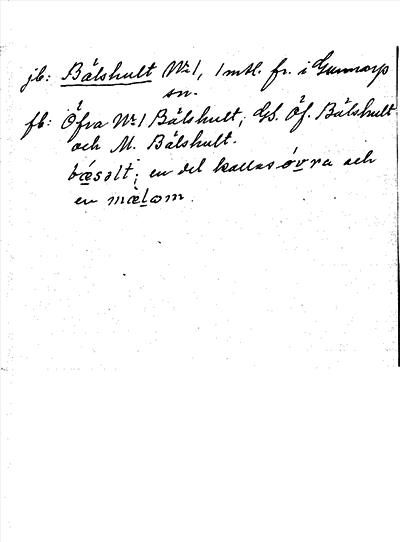 jb: Bälshult No 1, 1 mtl. fr. i Gunnarp
sn.
fb: Öfra No 1 Bälshult; GS. Öf. Bälshult
och M. Bälshult.
bǽsəlt; en del kallas óvra och
en mæləm.